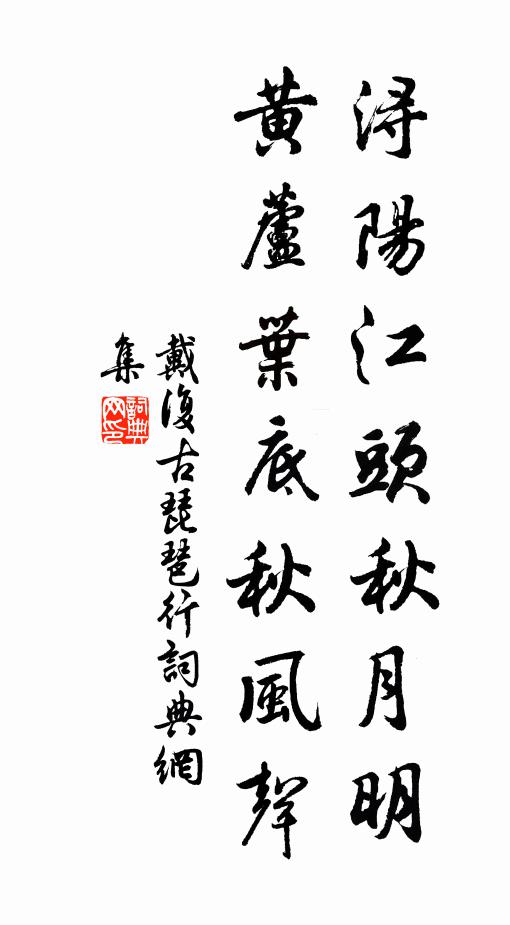 潯陽江頭秋月明
黃蘆葉底秋風聲
戴復古琵琶行詞典網
集
詞典网印